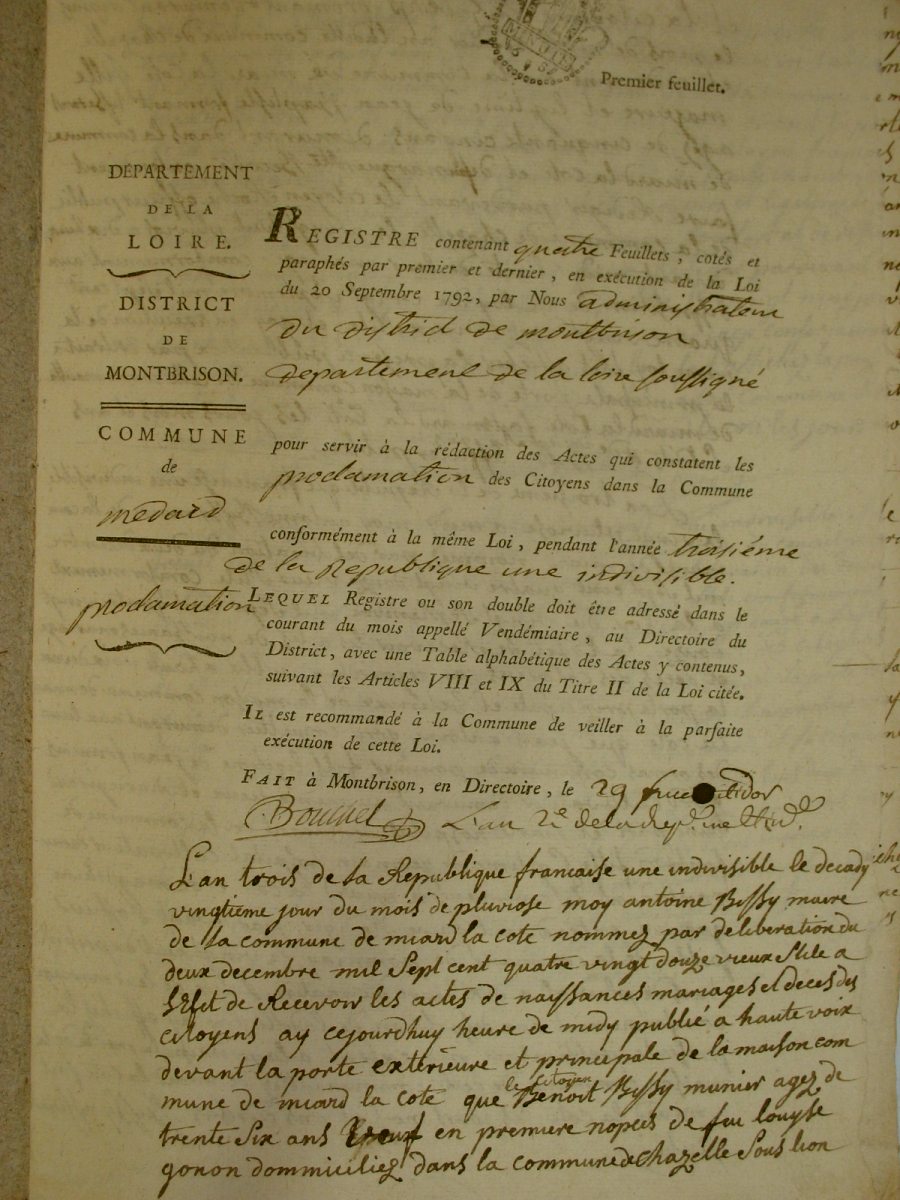 Premier feuillet.
DÉPARTEMENT
DE LA
LOIRE.
DISTRICT
DE
MONTBRISON.
COMMUNE
de
medard
proclamation
REGISTRE contenant quatre Feuillets, cotés et
paraphés par premier et dernier, en exécution de la Loi
du 20 Septembre 1792, par Nous administrateur
du district de montbrison
departement de la loire soussigné
pour servir à la rédaction des Actes qui constatent les
proclamation des Citoyens dans la Commune
conformément à la même Loi, pendant l'année troisiéme
de la Republique une indivisible.
LEQUEL Registre ou son double doit être adressé dans le
courant du mois appellé Vendémiaire, au Directoire du
District, avec une Table alphabétique des Actes y contenus,
suivant les Articles VIII et IX du Titre II de la Loi citée.
IL est recommandé à la Commune de veiller à la parfaite
exécution de cette Loi.
FAIT à Montbrison, en Directoire, le 29 fructidor
L'an 2e de la Rep.
L'an trois de la Republique francaise une indivisible le decady
vingtieme jour du mois de pluviose moy antoine Bissy maire
de la commune de miard la cote nommez par deliberation du
deux decembre mil Sept cent quatre vingt douze vieux Stile a
de Recevoir les actes de naissances mariages et deces des
citoyens ay cejourdhuy heure de midy publié a haute voix
devant la porte extérieure et principale de la maison com
mune de miard la cote que le Citoyen Benoit Bissy munier agez de
trente Six ans en premiere nopces de feu louyse
gonon dommiciliez dans la commune de chazelle Sous lion